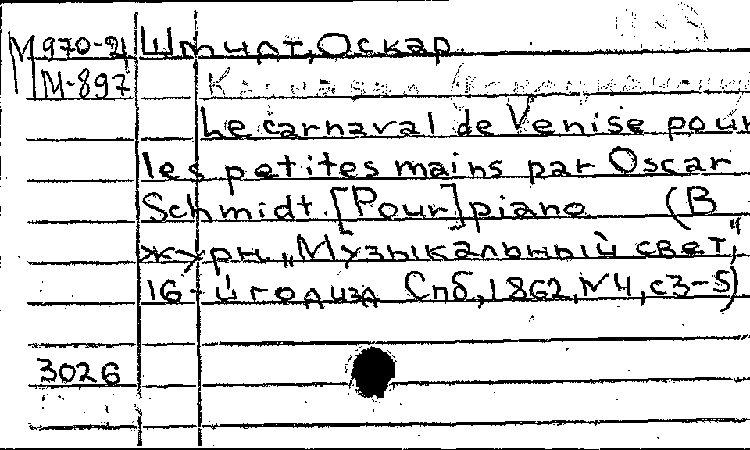 М970-21 Шмидт, Оскар
М-897
Le carnaval de Venise pour
les petites mains par Oscar
Schmidt. [Pour] piano (В
журн. „Музыкальный свет",
16-й год изд. Спб, 1862, №4, с3-5)
3026